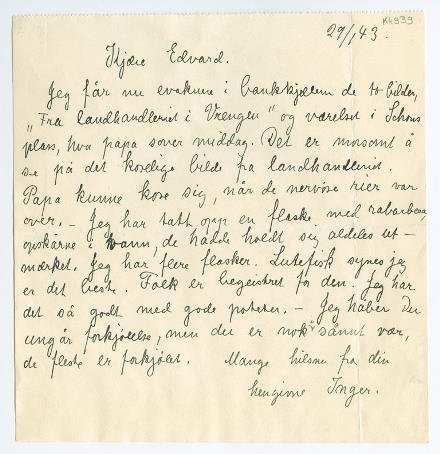 K4939
29/1 43.
Kjære Edvard.
Jeg får nu evakuere i bankkjelderen de to bilder,
"Fra landhandleriet i Vrengen" og værelset i Schous
plass, hvor papa sover middag. Det er morsomt å
se på det koselige bilde fra landhandleriet.
Papa kunne kose sig, når de nervöse rier var
over. – Jeg har tatt opp en flaske med rabarbra,
opskårne i vann, de hadde holdt sig aldeles ut –
merket. Jeg har flere flasker. Lutefisk synes jeg
er det beste. Folk er begeistret for den. Jeg har
det så godt med gode poteter. – Jeg håber Du
ungår forkjölelse, men det er nok sånnt vær,
de fleste er forkjölet. Mange hilsner fra din
hengivne Inger.